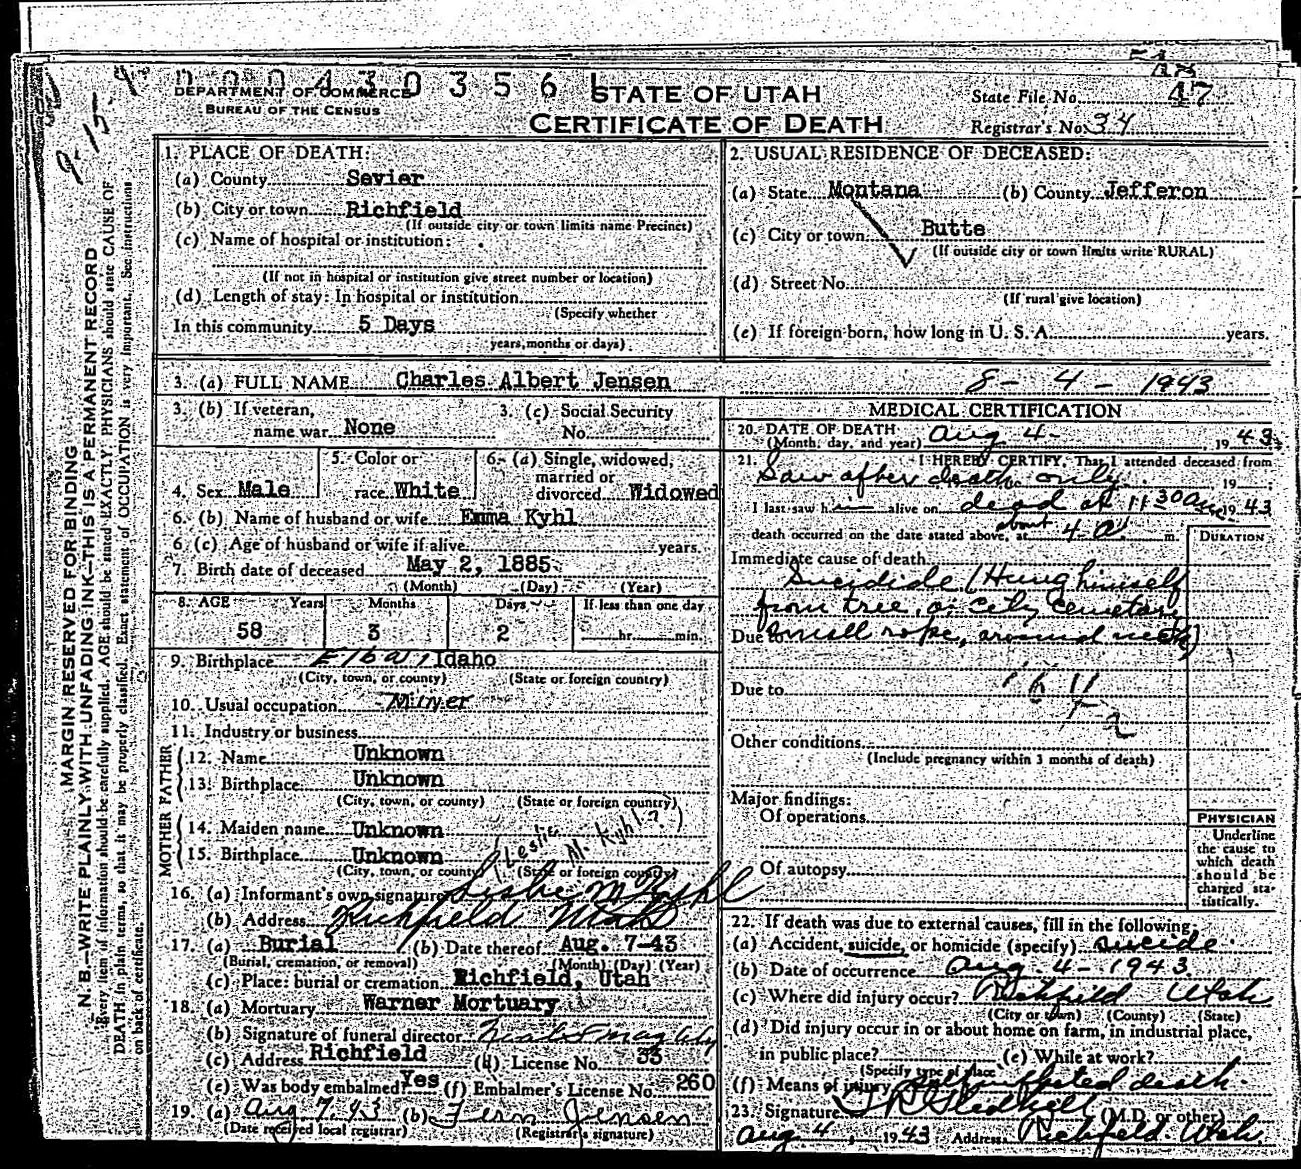 0 0 0 4 3 0 3 5 6 1
DEPARTMENT OF COMMERCE
BUREAU OF THE CENSUS
STATE OF UTAH
CERTIFICATE OF DEATH
State File No. 47
Registrar's No. 34
9-15
MARGIN RESERVED FOR BINDING
N. B.—WRITE PLAINLY, WITH UNFADING INK—THIS IS A PERMANENT RECORD
Every item of information should be carefully supplied. AGE should be stated EXACTLY. PHYSICIANS should state CAUSE OF
DEATH in plain terms, so that it may be properly classified. Exact statement of OCCUPATION is very important. See instructions
on back of certificate.
1. PLACE OF DEATH:
(a) County Sevier
(b) City or town Richfield
(If outside city or town limits name Precinct)
(c) Name of hospital or institution:
(If not in hospital or institution give street number or location)
(d) Length of stay: In hospital or institution
(Specify whether
In this community 5 Days
years, months or days)
2. USUAL RESIDENCE OF DECEASED:
(a) State Montana (b) County Jefferon
(c) City or town Butte
(If outside city or town limits write RURAL)
(d) Street No.
(If rural give location)
(e) If foreign born, how long in U. S. A. years.
3. (a) FULL NAME Charles Albert Jensen 8-4-1943
3. (b) If veteran,
name war None
3. (c) Social Security
No.
4. Sex Male
5. Color or
race White
6. (a) Single, widowed,
married or
divorced Widowed
6. (b) Name of husband or wife Emma Kyhl
6. (c) Age of husband or wife if alive years.
7. Birth date of deceased May 2, 1885
(Month) (Day) (Year)
8. AGE Years Months Days If less than one day
58 3 2 hr. min.
9. Birthplace Elba, Idaho
(City, town, or county) (State or foreign country)
10. Usual occupation Miner
11. Industry or business
FATHER
12. Name Unknown
13. Birthplace Unknown
(City, town, or county) (State or foreign country)
MOTHER
14. Maiden name Unknown
15. Birthplace Unknown
(City, town, or county) (State or foreign country)
(Leslie M. Kyhl?)
16. (a) Informant's own signature Leslie M Kyhl
(b) Address Richfield Utah
17. (a) Burial (b) Date thereof Aug. 7-43
(Burial, cremation, or removal) (Month) (Day) (Year)
(c) Place: burial or cremation Richfield, Utah
18. (a) Mortuary Warner Mortuary
(b) Signature of funeral director
(c) Address Richfield (d) License No. 33
(e) Was body embalmed? Yes (f) Embalmer's License No. 260
19. (a) Aug 7, 43 (b) Fern Jensen
(Date received local registrar) (Registrar's signature)
MEDICAL CERTIFICATION
20. DATE OF DEATH
(Month, day, and year) Aug 4- 1943
21. I HEREBY CERTIFY, That I attended deceased from
Saw after death only, 19
I last saw h im alive on dead at 11 30 am 1943
death occurred on the date stated above, at about 4 a. m.
DURATION
Immediate cause of death
Suicidide (Hung himself
from tree, at city cemetary
Due to small rope, around neck)
Due to
Other conditions
(Include pregnancy within 3 months of death)
Major findings:
Of operations
Of autopsy
PHYSICIAN
Underline
the cause to
which death
should be
charged sta-
tistically.
22. If death was due to external causes, fill in the following
(a) Accident, suicide, or homicide (specify) suicide
(b) Date of occurrence Aug-4-1943
(c) Where did injury occur? Richfield Utah
(City or town) (County) (State)
(d) Did injury occur in or about home on farm, in industrial place,
in public place? (e) While at work?
(Specify type of place)
(f) Means of injury self inflicted death.
23. Signature (M.D. or other)
Aug 4, 1943 Address Richfield Utah